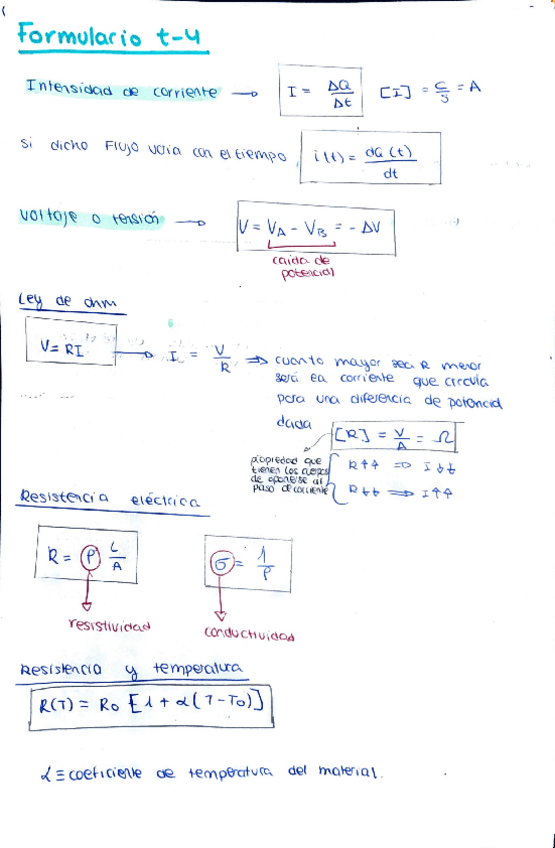 Formulario t-4
Intensidad de corriente → I = ΔQ/Δt [I] = C/s = A
si dicho Flujo varia con el tiempo, i(t) = dQ(t)/dt
Voltaje o tensión → V = VA - VB = - ΔV
caida de
potencial
Ley de ohm
V = RI → I = V/R ⇒ cuanto mayor sea R menor
será la corriente que circula
para una diferencia de potencial
dada
[R] = V/A = Ω
propiedad que
tienen los cuerpos
de oponerse al
paso de corriente
R↑↑ ⇒ I↓↓
R↓↓ ⇒ I↑↑
Resistencia eléctrica
R = ρ L/A σ = 1/ρ
resistividad conductividad
Resistencia y temperatura
R(T) = R0 [1 + α(T-T0)]
α ≡ coeficiente de temperatura del material.